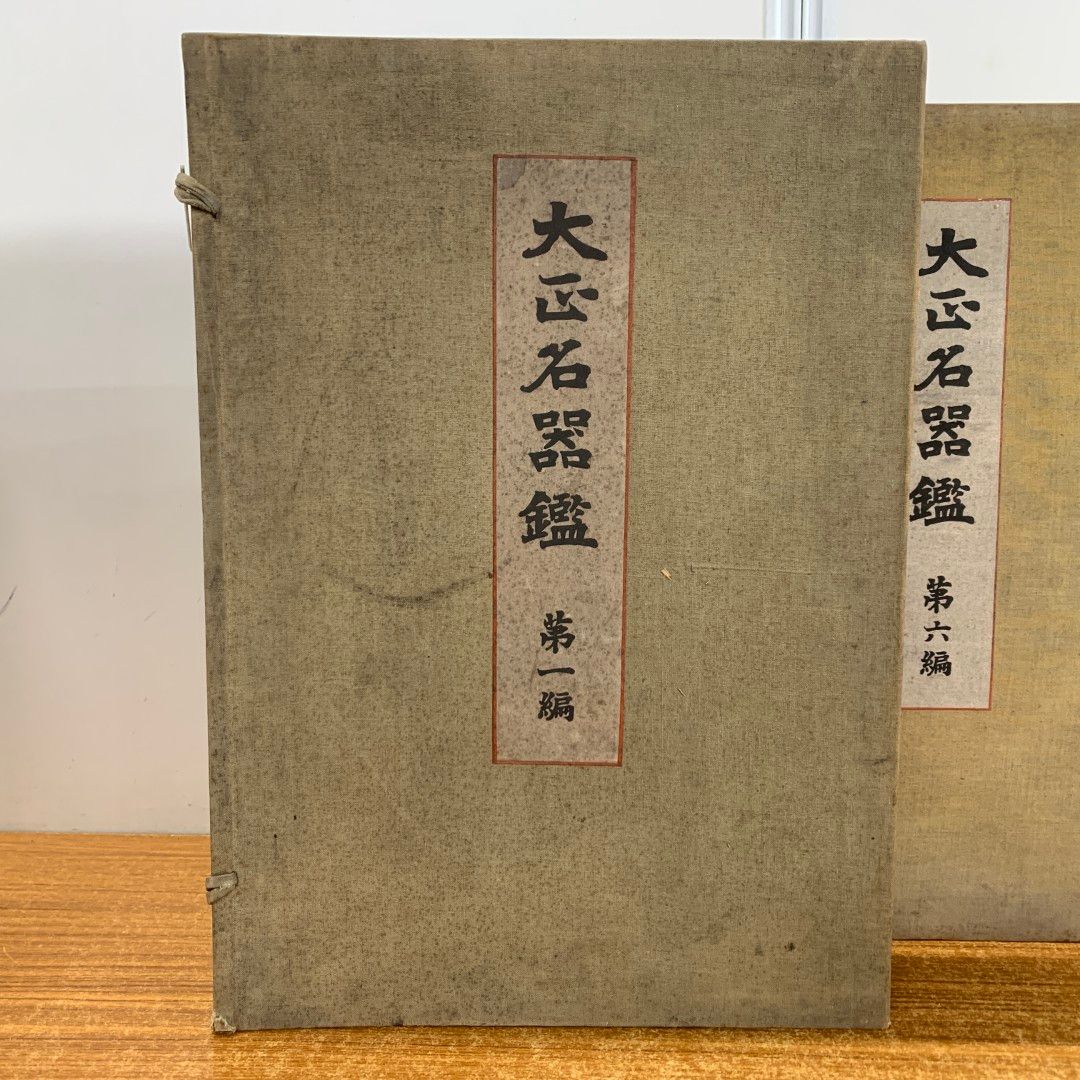 大正名器鑑 第一編
大正名器鑑 第六編